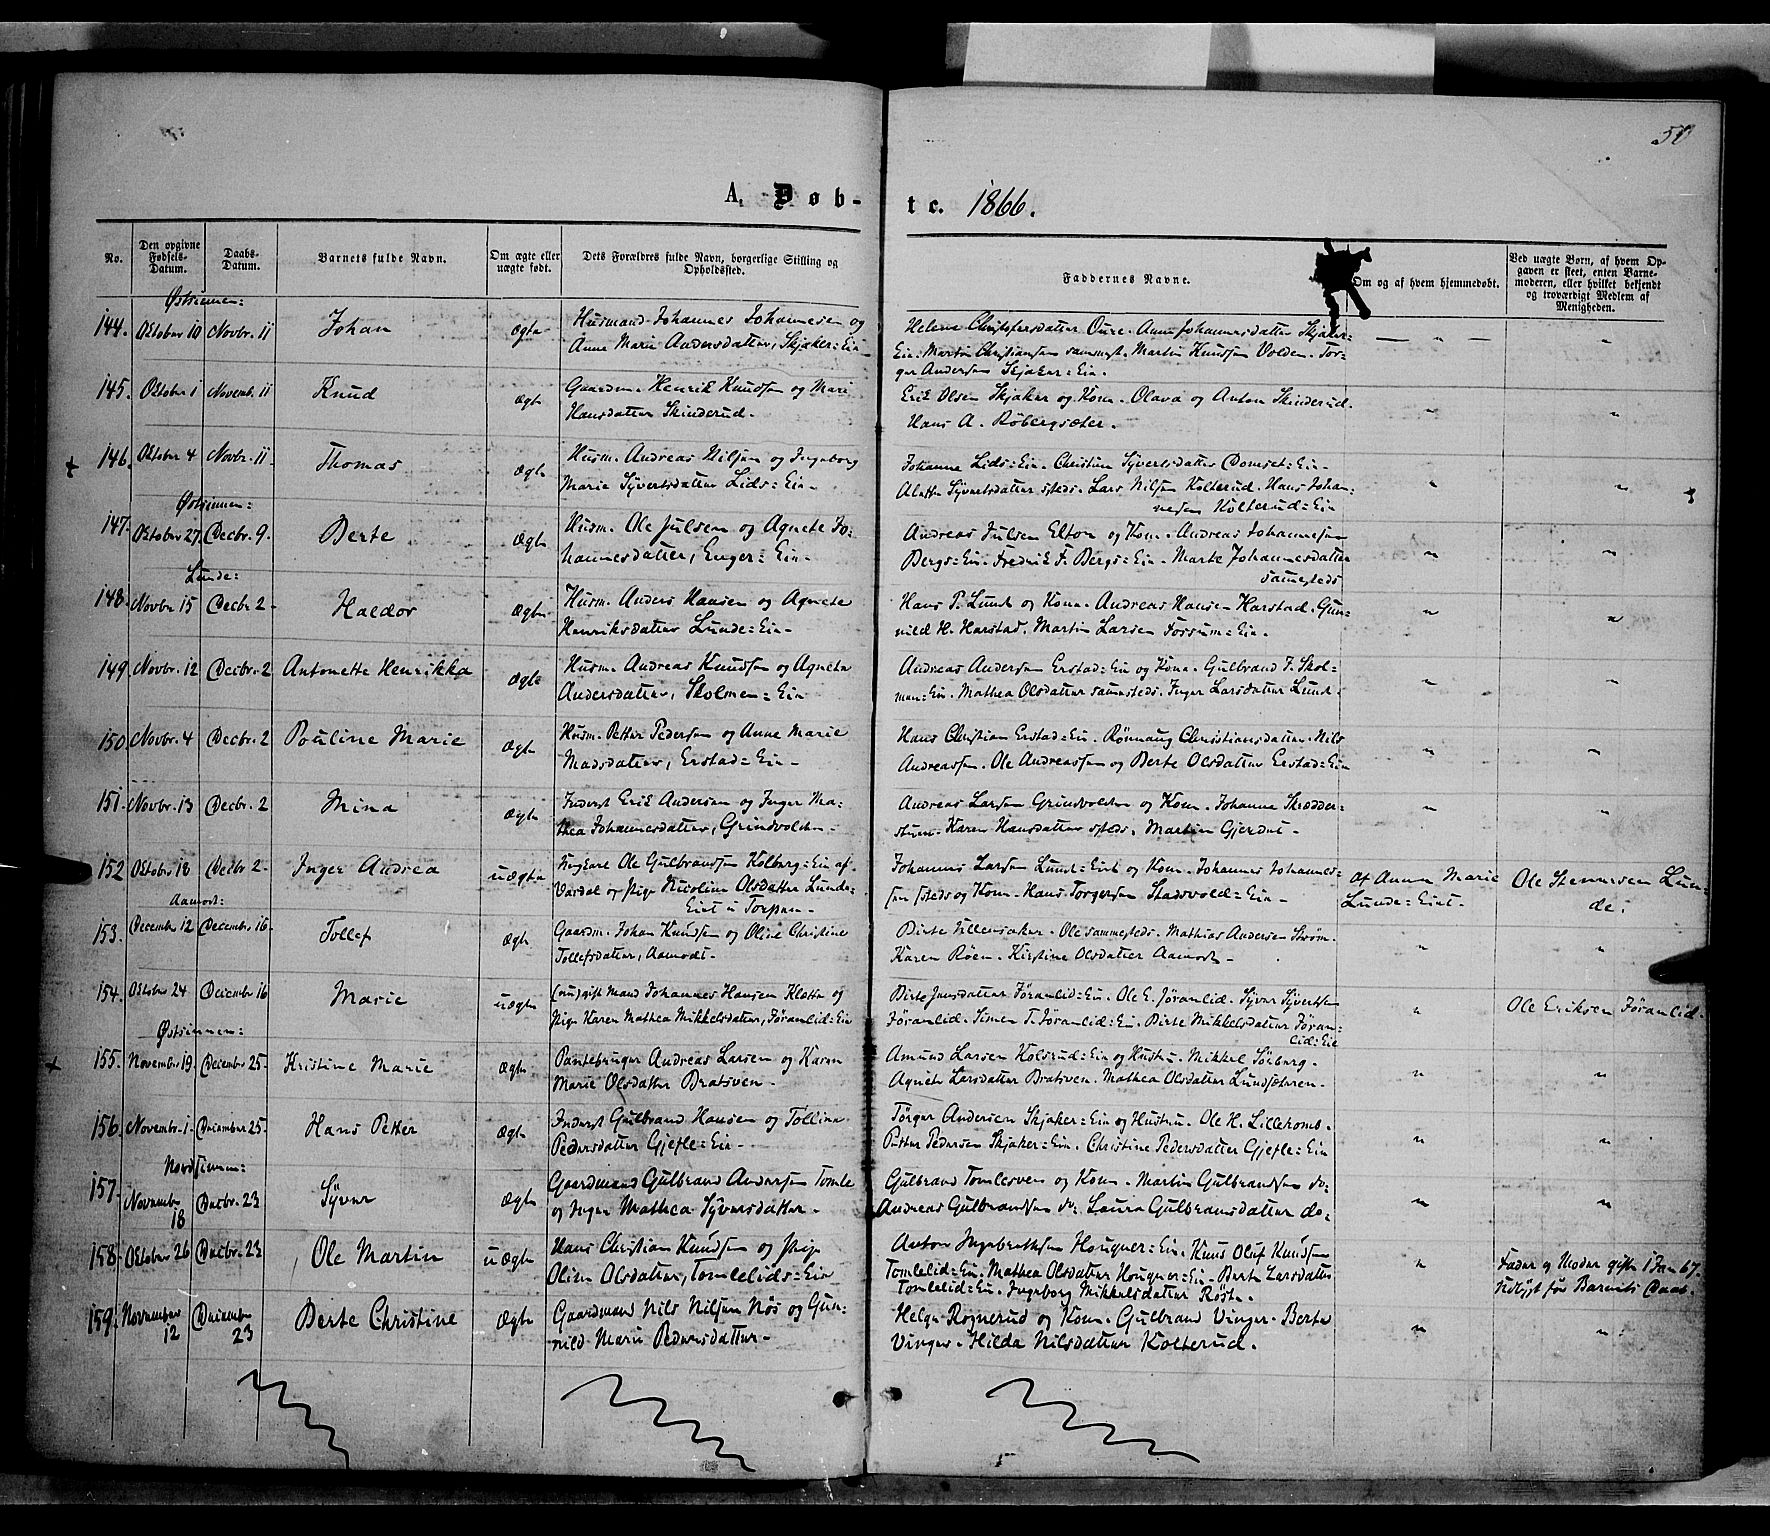 50
A. Døb-
te. 1866.
No.
Den opgivne Fødsels-Datum.
Daabs-Datum.
Barnets fulde Navn.
Om ægte eller uægte født.
Dets Forældres fulde Navn, borgerlige Stilling og Opholdssted.
Faddernes Navne.
Om og af hvem hjemmedøbt.
Ved uægte Børn, af hvem Opgaven er skeet, enten Barnemoderen, eller hvilket bekjendt og troværdigt Medlem af Menigheden.
Østsinnen:
144. Oktober 10 Novbr. 11 Johan Ægte Husmand Johannes Johannesen og
Anne Marie Andersdatter, Skjaker=Eie
Helene Christofersdatter Oure. Anne Johannesdatter Skjaker-
Eie. Martin Christiansen sammest. Martin Knudsen Volden. Tor-
ger Andersen Skjaker=Eie.
— " —
"
145. Oktober 1 Novemb. 11 Knud Ægte Gaardm. Henrik Knudsen og Mari
Hansdatter Skinderud.
Erik Olsen Skjaker og Kone. Olava og Anton Skinderud.
Hans A. Røbergsæter.
"
"
146. Oktober 4 Novbr. 11 Thomas Ægte Husm. Andreas Nilsen og Ingeborg
Marie Syvertsdatter Lids=Eie-
Johanne Lids=Eie. Christine Syvertsdatter Domset=Eie-
Alette Syvertsdatter ssteds. Lars Nilsen Kolterud. Hans Johan=
nesen Kolterud=Eie
"
"
Østsinnen:
147. Oktober 27. Decbr. 9. Berte Ægte Husm. Ole Julsen og Agnete Jo-
hannesdatter, Enger=Eie-
Andreas Julsen Elton og Kone. Andreas Johannesen
Bergs=Eie. Fredrik F. Bergs=Eie. Marte Johannesdatter
sammesteds
"
"
Lunde:
148. Novbr 15 Decbr 2- Haldor Ægte Husm. Anders Hansen og Agnete
Henriksdatter Lunde=Eie-
Hans P. Lund og Kone. Andreas Hansen Harstad. Gun-
nild H. Harstad. Martin Larsen Fossum=Eie.
"
"
149. Novbr. 12 Decbr. 2 Antonette Henrikka Ægte Husm. Andreas Knudsen og Agnete
Andersdatter, Skolmen=Eie
Andreas Andersen Erstad=Eie og Kone. Gulbrand F. Skol-
men=Eie. Mathea Olsdatter sammesteds. Inger Larsdatter Lund.
"
"
150. Novbr. 4 Decbr. 2 Pouline Marie Ægte Husm. Petter Pedersen og Anne Marie
Madsdatter, Erstad=Eie-
Hans Christian Erstad=Eie. Rønnaug Christiansdatter. Nils
Andreassen. Ole Andreassen og Berte Olsdatter Erstad=Eie
"
"
151. Novbr. 13 Decbr. 2 Mina Ægte Inderst Erik Andersen og Inger Ma-
thea Johannesdatter, Grindvolden-
Andreas Larsen Grindvolden og Kone. Johanne Skrædder-
stuen. Karen Hansdatter ssteds. Martin Gjerdet-
"
"
152 Oktober 18 Decbr 2- Inger Andrea uægte Ungkarl Ole Gulbrandsen Kolberg=Eie af
Vardal og Pige Nicoline Olsdatter Lunde=
Eiet i Torpen-
Johannes Larsen Lund=Eiet og Kone. Johannes Johannes-
sen ssteds og Kone. Hans Torgersen Stadsvold=Eie-
Af Anne Marie
Lunde=Eiet-
Ole Stenersen Lun-
de.
Aamodt:
153. December 12 December 16- Tollef Ægte Gaardm. Johan Knudsen og Oline Christine
Tollefsdatter, Aamodt-
Birte Ullensaker. Ole sammesteds. Mathias Andersen Strøm.
Karen Røen. Kirstine Olsdatter Aamodt-
"
"
154. Oktober 24 December 16 Marie uægte (nu) gift Mand Johannes Hansen Kletten og
Pige Karen Mathea Mikkelsdatter, Føranlid=Eie
Birte Jensdatter Føranlid=Eie. Ole E. Føranlid. Syver Syvertsen
Føranlid. Simen T. Føranlid=Eie. Birte Mikkelsdatter Føran=
lid=Eie
"
Ole Eriksen Føranlid.
Østsinnen:
155. November 19. December 25- Kristine Marie Ægte Pantebruger Andreas Larsen og Karen
Marie Olsdatter Bratsven-
Amund Larsen Kolsrud=Eie og Hustru. Mikkel Søeberg.
Agnete Larsdatter Bratsven. Mathea Olsdatter Lundsæteren-
"
"
156. Novembr. 1- December 25- Hans Petter Ægte Inderst Gulbrand Hansen og Tolline
Pedersdatter Gjefle=Eie-
Torger Andersen Skjaker=Eie og Hustru. Ole H. Lillehomb.
Petter Pedersen Skjaker=Eie. Christine Pedersdatter Gjefle=Eie
"
"
Nordsinnen:
157. November 18 Decbr. 23 Syver Ægte Gaardmand Gulbrand Andersen Tomle
og Inger Mathea Syversdatter.
Gulbrand Tomlesven og Kone. Martin Gulbrandsen do-
Andreas Gulbrandsen do. Laura Gulbransdatter do-
"
"
158. Oktober 26 Decbr. 23 Ole Martin uÆgte Hans Christian Knudsen og Pige
Oline Olsdatter, Tomlelids=Eie
Anton Ingebretsen Hougner=Eie. Knud Oluf Knudsen
Tomlelid=Eie. Mathea Olsdatter Hougner=Eie. Berte Larsdatter
Tomlelid=Eie. Ingeborg Mikkelsdatter Røste.
"
Fader og Moder gifte 1 Jan 67.
159. November 12 December 23 Berte Christine Ægte Gaardmand Nils Nilsen Nøs og Gun=
nild Marie Pedersdatter-
Helge Rognerud og Kone. Gulbrand Vinger. Berte
Vinger. Hilda Nilsdatter Kolterud.
"
"